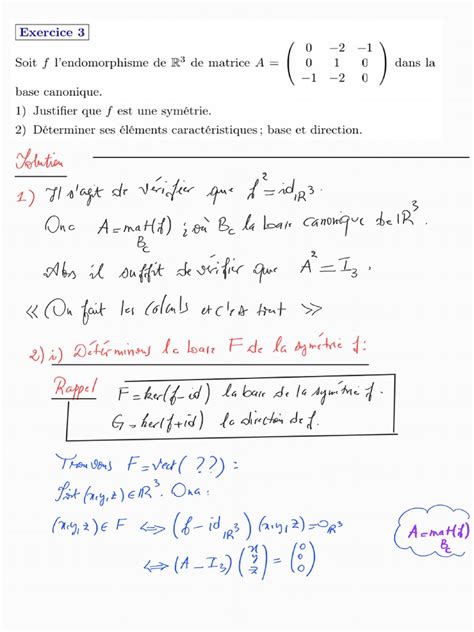 Exercice 3
Soit f l'endomorphisme de ℝ³ de matrice A = ( 0 −2 −1 ; 0 1 0 ; −1 −2 0 ) dans la
base canonique.
1) Justifier que f est une symétrie.
2) Déterminer ses éléments caractéristiques ; base et direction.
Solution
1) Il s'agit de vérifier que f² = id_ℝ³.
Ona A = mat_Bc(f) ; où Bc la base canonique de ℝ³.
Alors il suffit de vérifier que A² = I₃.
« On fait les calculs et c'est tout »
2) i) Déterminons la base F de la symétrie f :
Rappel
F = ker(f − id) la base de la symétrie f.
G = ker(f + id) la direction de f.
Trouvons F = vect( ?? ) :
Soit (x,y,z) ∈ ℝ³. Ona :
(x,y,z) ∈ F ⟺ (f − id_ℝ³)(x,y,z) = 0_ℝ³
⟺ (A − I₃) ( x ; y ; z ) = ( 0 ; 0 ; 0 )
A = mat_Bc(f)